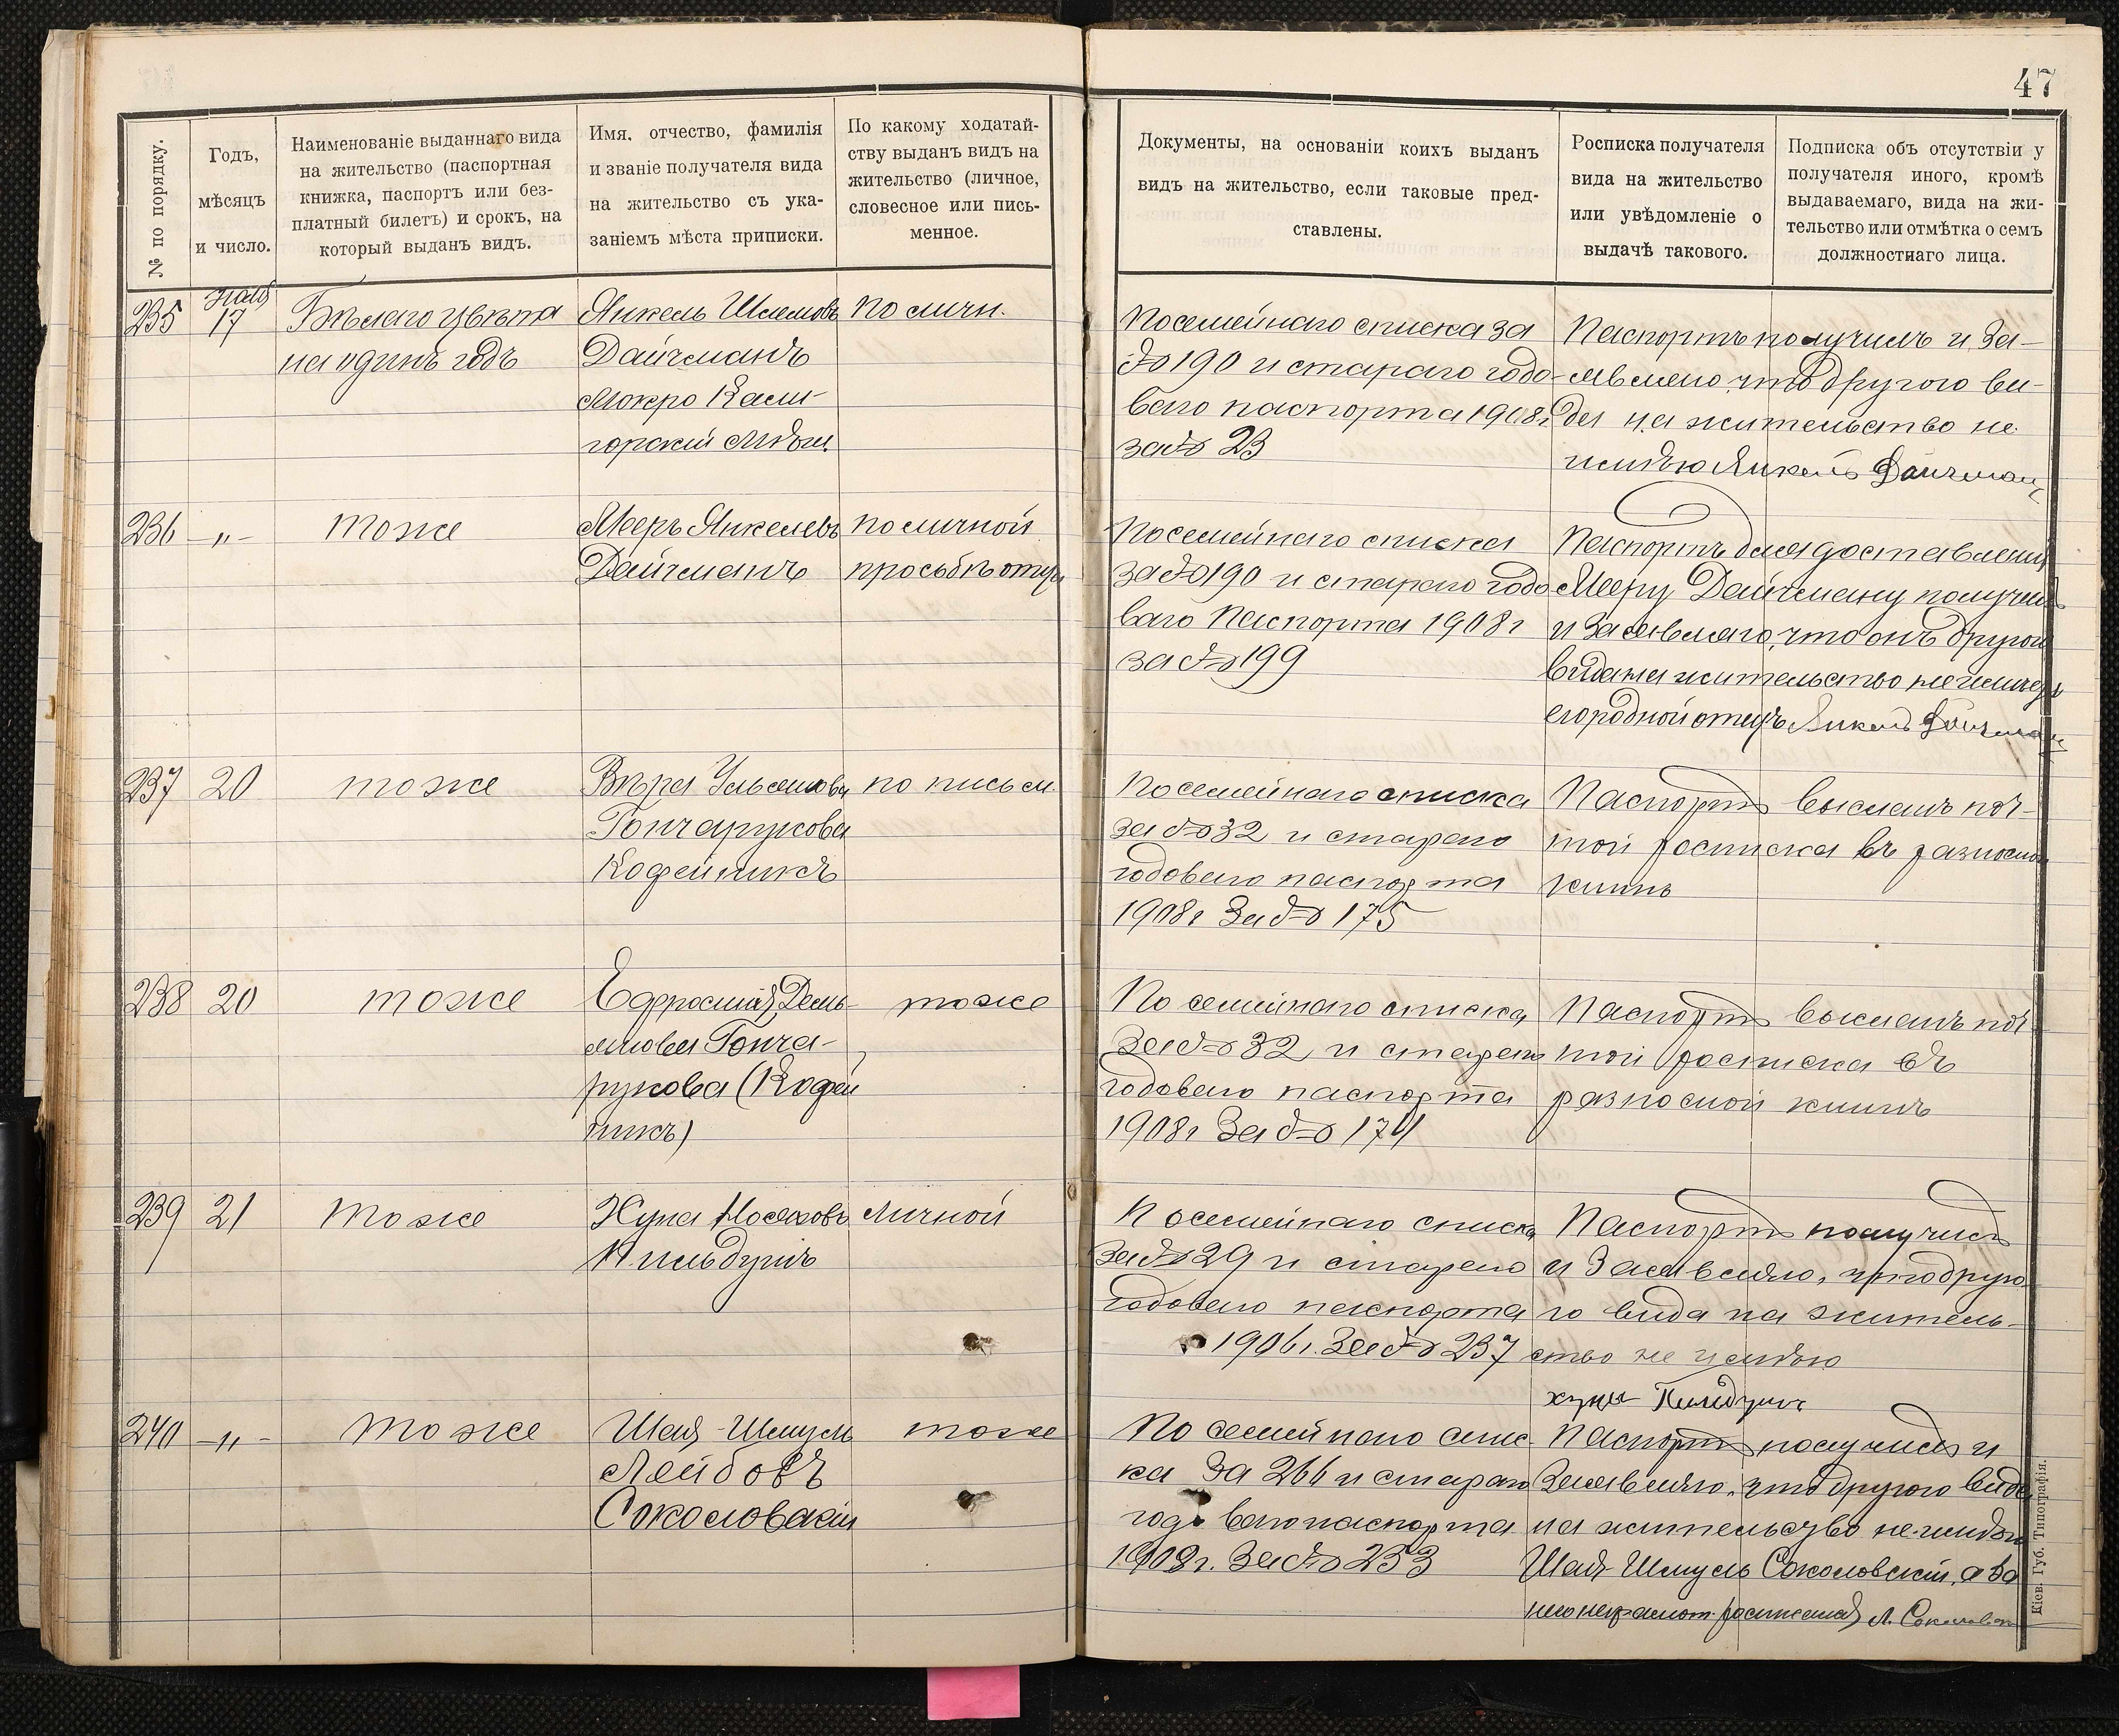 47
№ по порядку.
Годъ,
мѣсяцъ
и число.
Наименованіе выданнаго вида
на жительство (паспортная
книжка, паспортъ или без-
платный билетъ) и срокъ, на
который выданъ видъ.
Имя, отчество, фамилія
и званіе получателя вида
на жительство съ ука-
заніемъ мѣста приписки.
По какому ходатай-
ству выданъ видъ на
жительство (личное,
словесное или пись-
менное.
Документы, на основаніи коихъ выданъ
видъ на жительство, если таковые пред-
ставлены.
Росписка получателя
вида на жительство
или увѣдомленіе о
выдачѣ такового.
Подписка объ отсутствіи у
получателя иного, кромѣ
выдаваемаго, вида на жи-
тельство или отмѣтка о семъ
должностнаго лица.
235
17
Бѣлаго цвѣта
на одинъ годъ
Янкель Шлемовъ
Дайчманъ
Мокро Кали-
горскій Мѣщ.
по личн.
По семейнаго списка за
№ 190 и стараго годо-
ваго паспорта 1908 г
за № 23
Паспортъ получилъ и за-
являю, что другого ви-
да на жительство не
имѣю Янкель Дайчман
236
-"-
тоже
Мееръ Янкелевъ
Дайчманъ
по личной
просьбѣ отца
По семейнаго списка
за № 190 и стараго годо
ваго паспорта 1908 г
за № 199
Паспортъ для доставленія
Мееру Дайчману получилъ
и заявляю, что онъ другого
вида на жительство не имѣетъ
его родной отецъ Янкель Дайчман
237
20
тоже
Вѣра
Гончарукова
Кофейникъ
по письм.
По семейнаго списка
за № 32 и стараго
годоваго паспорта
1908 г за № 175
Паспортъ высланъ поч-
той росписка въ разносной
книгѣ
238
20
тоже
Ефросинія Демь-
янова Гонча-
рукова (Кофей
никъ)
тоже
По семейнаго списка
за № 32 и стараго
годоваго паспорта
1908 г за № 174
Паспортъ высланъ поч-
той росписка въ
разносной книгѣ
239
21
тоже
Хуна Мосеховъ
личной
По семейнаго списка
за № 29 и стараго
годоваго паспорта
1906 г. за № 237
Паспортъ получилъ
и заявляю, что друго
го вида на житель-
ство не имѣю
240
-"-
тоже
Шая-Шмуль
Лейбовъ
Соколовскій
тоже
По семейнаго спис-
ка за 266 и стараго
годоваго паспорта
1908 г. за № 233
Паспортъ получилъ и
заявляю, что другого вида
на жительство не имѣю
Шая-Шмуль Соколовскій, а за
него неграмот. росписался Л. Соколовскій
Кіев. Губ. Типографія.